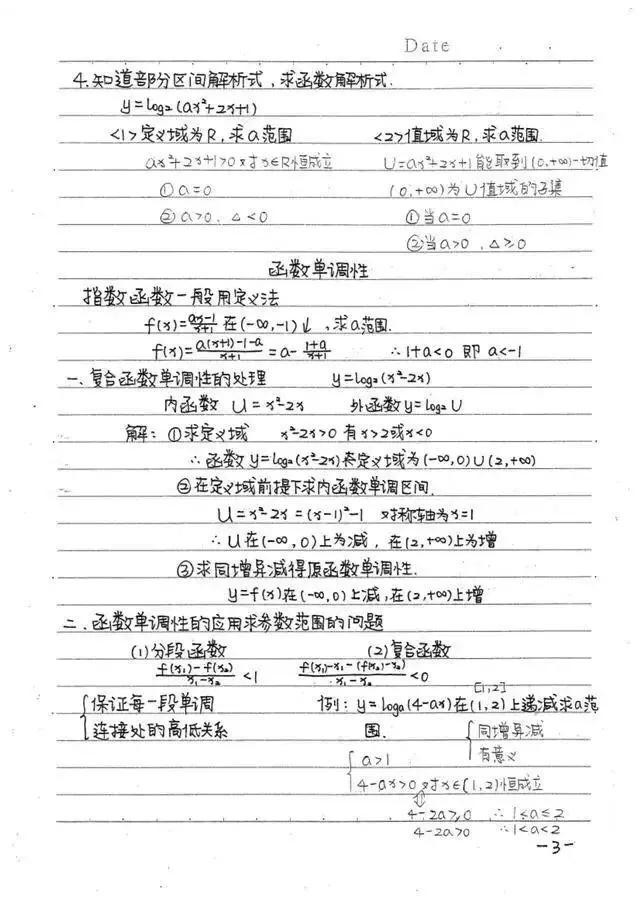 Date
4.知道部分区间解析式,求函数解析式.
y=log₂(ax²+2x+1)
<1>定义域为R,求a范围 <2>值域为R,求a范围.
ax²+2x+1>0对x∈R恒成立 U=ax²+2x+1能取到(0,+∞)一切值
①a=0 (0,+∞)为U值域的子集
②a>0、△<0 ①当a=0
②当a>0、△≥0
函数单调性
指数函数一般用定义法
f(x)=(ax-1)/(x+1) 在(-∞,-1)↓,求a范围.
f(x)=(a(x+1)-1-a)/(x+1)=a-(1+a)/(x+1) ∴1+a<0 即 a<-1
一.复合函数单调性的处理 y=log₂(x²-2x)
内函数 U=x²-2x 外函数y=log₂U
解:①求定义域 x²-2x>0 有x>2或x<0
∴函数y=log₂(x²-2x)定义域为(-∞,0)U(2,+∞)
②在定义域前提下求内函数单调区间.
U=x²-2x=(x-1)²-1 对称轴为x=1
∴U在(-∞,0)上为减,在(2,+∞)上为增
③求同增异减得原函数单调性.
y=f(x)在(-∞,0)上减,在(2,+∞)上增
二.函数单调性的应用求参数范围的问题
(1)分段函数 (2)复合函数
(f(x₁)-f(x₂))/(x₁-x₂)<1 (f(x₁)-x₁-(f(x₂)-x₂))/(x₁-x₂)<0
[1,2]
{保证每一段单调 例:y=logₐ(4-ax)在(1,2)上递减求a范
连接处的高低关系 围. {同增异减
有意义
{a>1
4-ax>0对x∈[1,2)恒成立
⇕
4-2a≥0 ∴1<a≤2
4-2a>0 ∴1<a<2
-3-